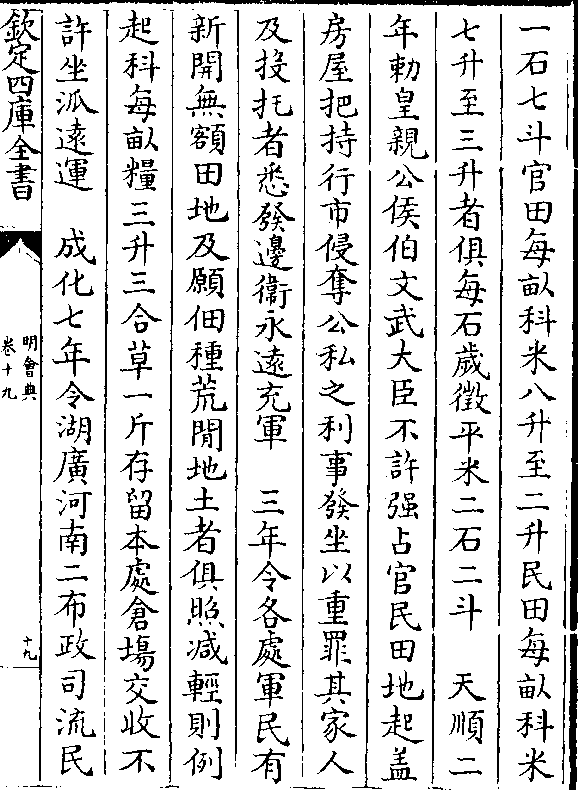 一石七斗官田每畝科米八升至二升民田每畝科米
七升至三升者俱每石歲徵平米二石二斗　天順二
年勅皇親公侯伯文武大臣不許强占官民田地起盖
房屋把持行市侵奪公私之利事發坐以重罪其家人
及投托者悉發邊衛永遠充軍　三年令各處軍民有
新開無額田地及願佃種荒閒地土者俱照减輕則例
起科每畝糧三升三合草一斤存留本處倉場交收不
許坐派遠運　成化七年令湖廣河南二布政司流民
欽定四庫全書
明會典
卷十九
十九